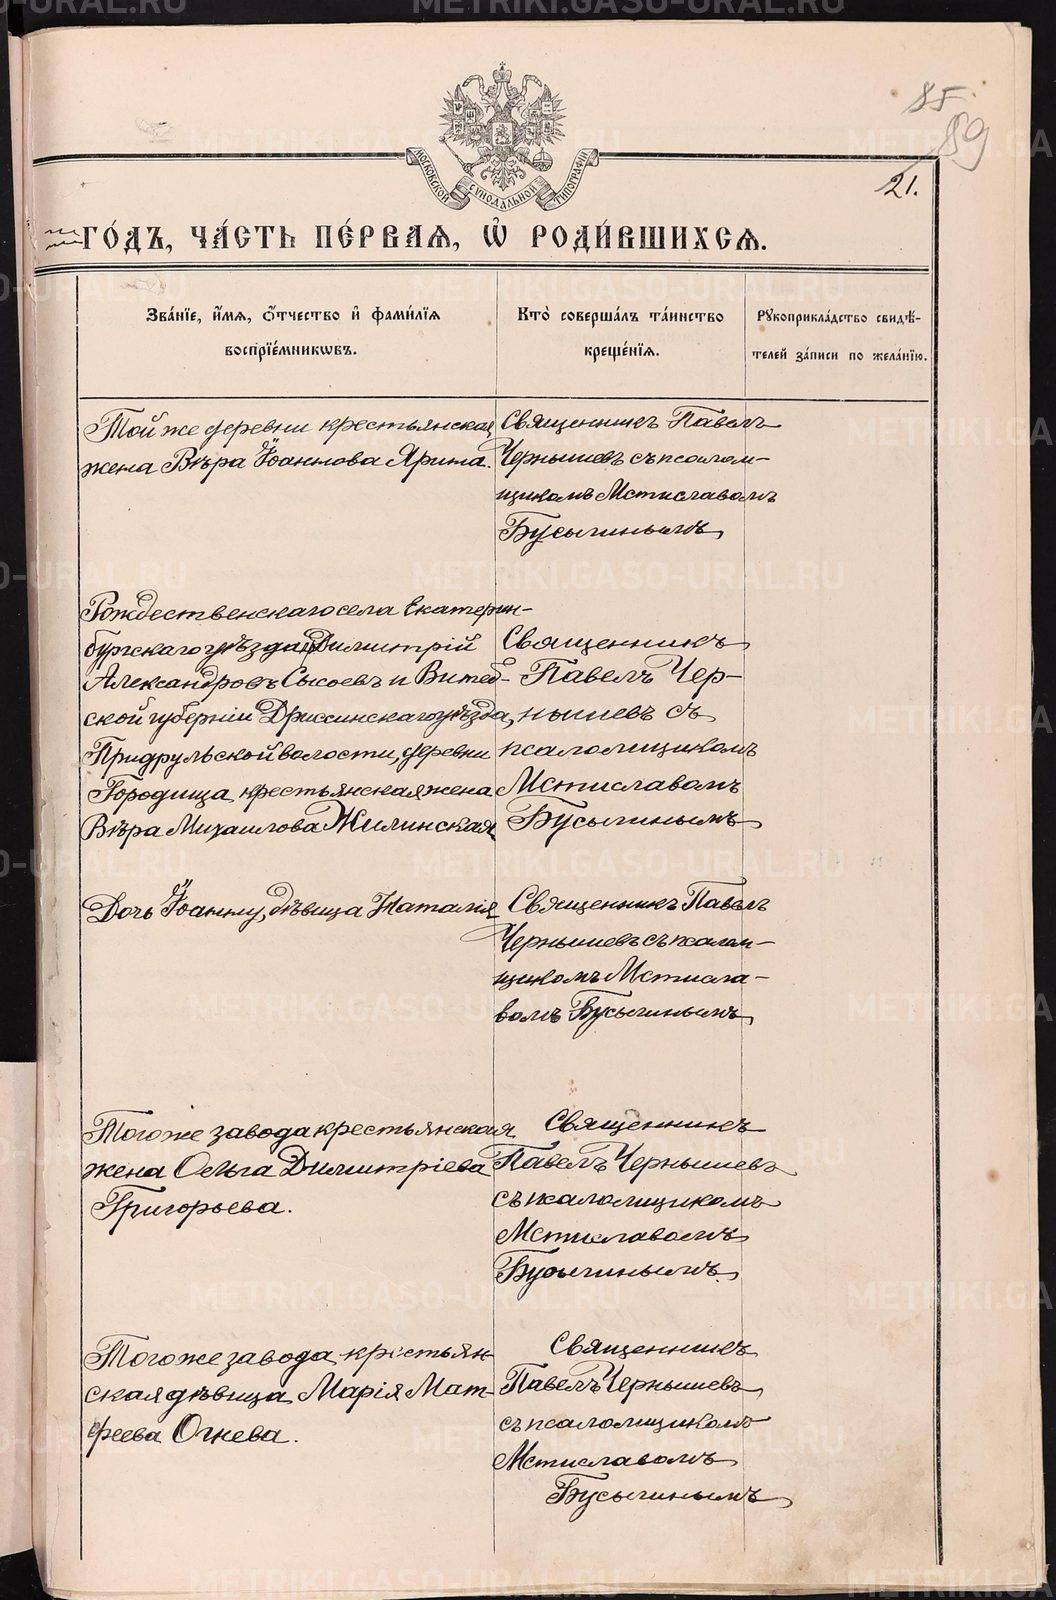 85
89
21.
МОСКОВСКОЙ СѴНОДАЛЬНОЙ ТИПОГРАФІИ
ГО́ДЪ, ЧА́СТЬ ПЕ́РВАѦ, Ѽ РОДИ́ВШИХСѦ.
Зва́нїе, и҆́мѧ, ѻ҆́тчество и҆ фами́лїѧ
воспрїе́мникѡвъ.
Кто̀ соверша́лъ та́инство
креще́нїѧ.
Рꙋкоприкла́дство свидѣ́-
телей за́писи по жела́нїю.
Той же деревни крестьянская
жена Вѣра Іоаннова Ярина.
Священникъ Павелъ
Чернышевъ съ псалом-
щикомъ Мстиславомъ
Бусыгинымъ
Рождественскаго села Екатерин-
бургскаго уѣзда Димитрій
Александровъ Сысоевъ и Витеб-
ской губерніи Дриссинскаго уѣзда,
Придруйской волости, деревни
Городища крестьянская жена
Вѣра Михаилова Жилинская
Священникъ
Павелъ Чер-
нышевъ съ
псаломщикомъ
Мстиславомъ
Бусыгинымъ
Дочь Іоанну, дѣвица Наталія
Священникъ Павелъ
Чернышевъ съ псалом-
щикомъ Мстисла-
вомъ Бусыгинымъ
Того же завода крестьянская
жена Ольга Димитріева
Григорьева.
Священникъ
Павелъ Чернышевъ
съ псаломщикомъ
Мстиславомъ
Бусыгинымъ
Того же завода крестьян-
ская дѣвица Марія Мат-
феева Огнева.
Священникъ
Павелъ Чернышевъ
съ псаломщикомъ
Мстиславомъ
Бусыгинымъ
METRIKI.GASO-URAL.RU